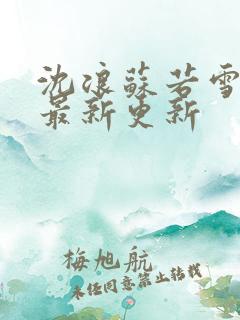 沈浪蘇若雪
最新更新
梅旭航
未经同意禁止转载